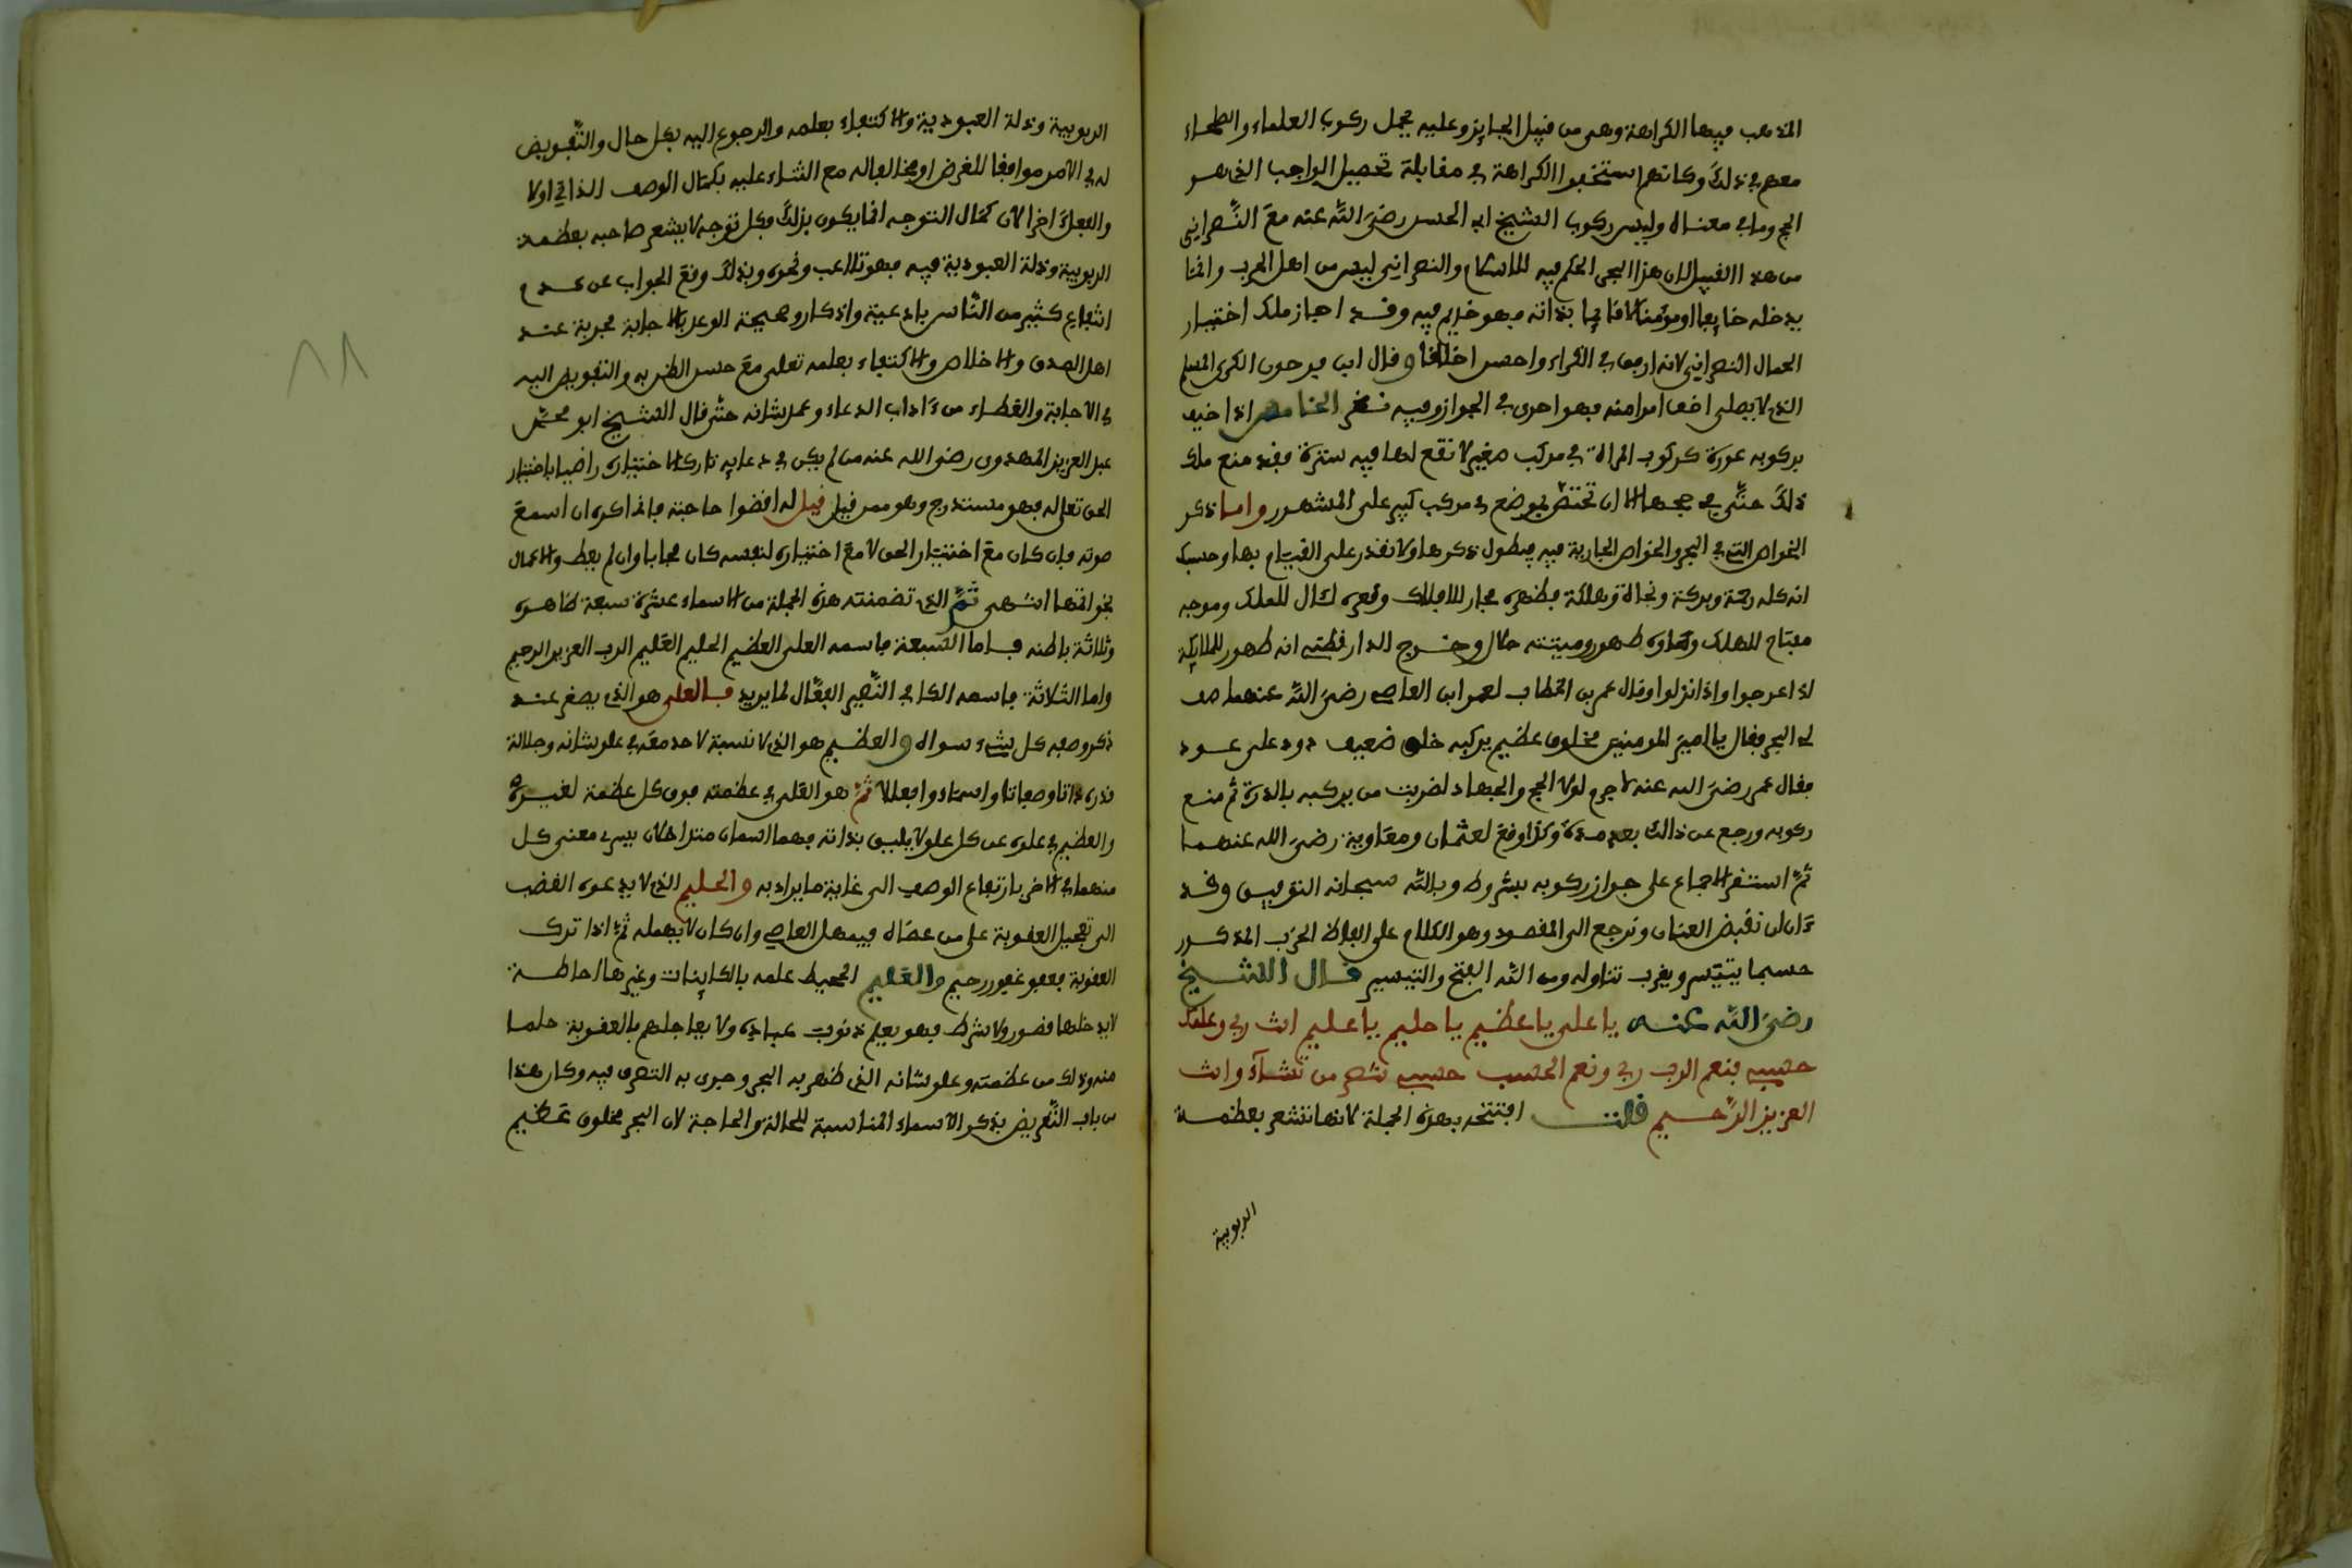 المذهب فيها الكراهة وهي من قبيل الجايز وعليه يحمل ركوب العلماء والصلحاء
معهم في ذلك وكانهم استخفوا الكراهة في مقابلة تحصيل الواجب الذي هو
الحج وما في معناه وليس ركوب الشيخ ابي الحسن رضي الله عنه مع النصراني
من هذا القبيل لان هذا البحر الحكم فيه للاسلام والنصراني ليس من اهل الحرب وانما
يدخله خايفا او مومنا لا قايما بذاته فهو خديم فيه وقد اجاز ملك اختيار
الحمال النصراني لانه ارفق في الكراء واحسن اخلاقا وقال ابن فرحون الكري المسلم
الذي لا يصلي اخف امرا منه فهو احرى في الجواز وفيه نظر الخامس اذا خيف
بركوبه عورة كركوب المراة في مركب صغير لا تقع لها فيه سترة فقد منع ملك
ذلك حتى في حجها الا ان تختص بموضع في مركب كبير على المشهور واما ذكر
الخواص التي في البحر والخواص الجارية فيه فيطول ذكرها ولا نقدر على القيام بها وحسبك
انه كله رحمة وبركة ونجاة وهلكة فظهره مجار للافلاك وقعره لئال للملك وموجه
مفتاح للهلك وماؤه طهور وميتته حلال وخرج الدارقطني انه طهور للملايكة
اذا عرجوا واذا نزلوا وقال عمر بن الخطاب لعمرو ابن العاصي رضي الله عنهما صف
لي البحر فقال يا امير المومنين مخلوق عظيم يركبه خلق ضعيف دود على عود
فقال عمر رضي الله عنه لا جرم لولا الحج والجهاد لضربت من يركبه بالدرة ثم منع
ركوبه ورجع عن ذالك بعد مدة وكذا وقع لعثمان ومعاوية رضي الله عنهما
ثم استقر الاجماع على جواز ركوبه بشروط وبالله سبحانه التوفيق وقد
ءان ان نقبض العنان ونرجع الى المقصود وهو الكلام على الفاظ الحزب المذكور
حسبما يتيسر ويقرب تناوله ومن الله الفتح والتيسير قال الشيخ
رضي الله عنه يا علي يا عظيم يا حليم يا عليم انت ربي وعلمك
حسبي فنعم الرب ربي ونعم الحسب حسبي تنصر من تشآء وانت
العزيز الرحيم قلت افتتحه بهذه الجملة لانها تشعر بعظمة
الربوبية
الربوبية وذلة العبودية والاكتفاء بعلمه والرجوع اليه بكل حال والتفويض
له في الامر موافقا للغرض او مخالفا له مع الثناء عليه بكمال الوصف الذاتي اولا
والفعلي اخرا لان كمال التوجه انما يكون بذلك فكل توجه لا يشعر صاحبه بعظمة
الربوبية وذلة العبودية فيه فهو تلاعب ونحوه وبذلك وقع الجواب عن عدم
انتفاع كثير من الناس بادعية واذكار وصحيحة الوعد بالاجابة مجربة عند
اهل الصدق والاخلاص والاكتفاء بعلمه تعلى مع حسن الظن به والتفويض اليه
في الاجابة والقضاء من ءاداب الدعاء وعمل شانه حتى قال الشيخ ابو محمد
عبد العزيز المهدوي رضي الله عنه من لم يكن في دعايه تاركا لاختياره راضيا باختيار
الحق تعلى له فهو مستدرج وهو ممن قيل قيل له اقضوا حاجته فانا اكره ان اسمع
صوته فان كان مع اختيار الحق لا مع اختياره لنفسه كان مجابا وان لم يعط والاعمال
بخواتمها انتهى ثم الذي تضمنته هذه الجملة من الاسماء عشرة سبعة ظاهرة
وثلاثة باطنه فاما السبعة فاسمه العلي العظيم الحليم العليم الرب العزيز الرحيم
واما الثلاثة فاسمه الكافي النصير الفعال لما يريد فالعلي هو الذي يصغر عند
ذكر وصفه كل شيء سواه والعظيم هو الذي لا نسبة لاحد معه في علو شانه وجلالة
قدره ذاتا وصفاتا واسماء وافعالا ثم هو العلي في عظمته فوق كل عظمة لغيره
والعظيم في علوه عن كل علو لا يليق بذاته فهما اسمان متداخلان يسري معنى كل
منهما في الاخر بارتفاع الوصف الى غاية ما يراد به والحليم الذي لا يدعوه الغضب
الى تعجيل العقوبة على من عصاه فيمهل العاصي وان كان لا يهمله ثم اذا ترك
العقوبة فعفو غفور رحيم والعليم المحيط علمه بالكاينات وغيرها احاطة
لا يدخلها قصور ولا شرط فهو يعلم ذنوب عباده ولا يعاجلهم بالعقوبة حلما
منه وذلك من عظمته وعلو شانه الذي ظهر به البحر وجرى به التصرف فيه وكان هذا
من باب التعريض بذكر الاسماء المناسبة للحالة والحاجة لان البحر مخلوق عظيم
١٨